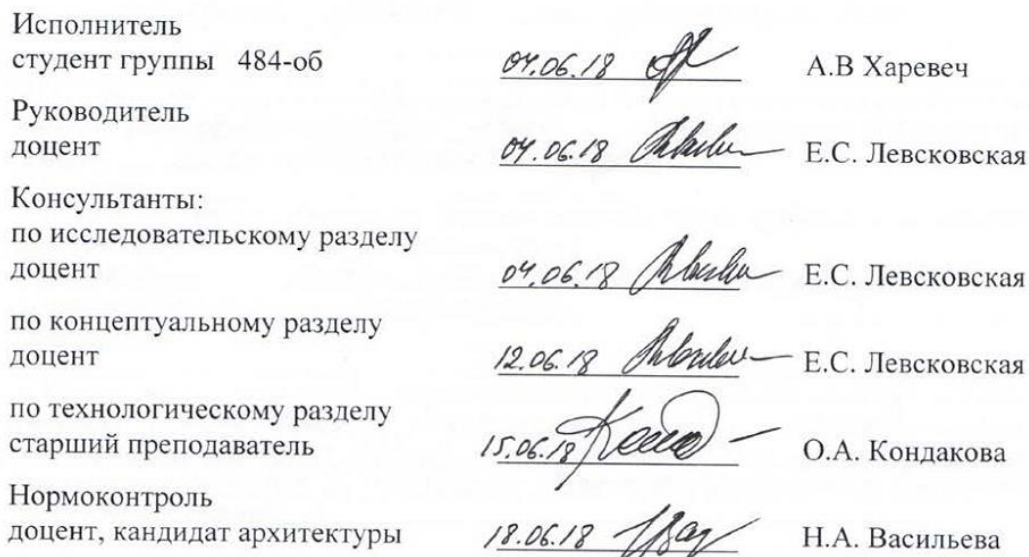 Исполнитель
студент группы 484-об 04.06.18 А.В Харевеч
Руководитель
доцент 04.06.18 Е.С. Левсковская
Консультанты:
по исследовательскому разделу
доцент 04.06.18 Е.С. Левсковская
по концептуальному разделу
доцент 12.06.18 Е.С. Левсковская
по технологическому разделу
старший преподаватель 15.06.18 О.А. Кондакова
Нормоконтроль
доцент, кандидат архитектуры 18.06.18 Н.А. Васильева